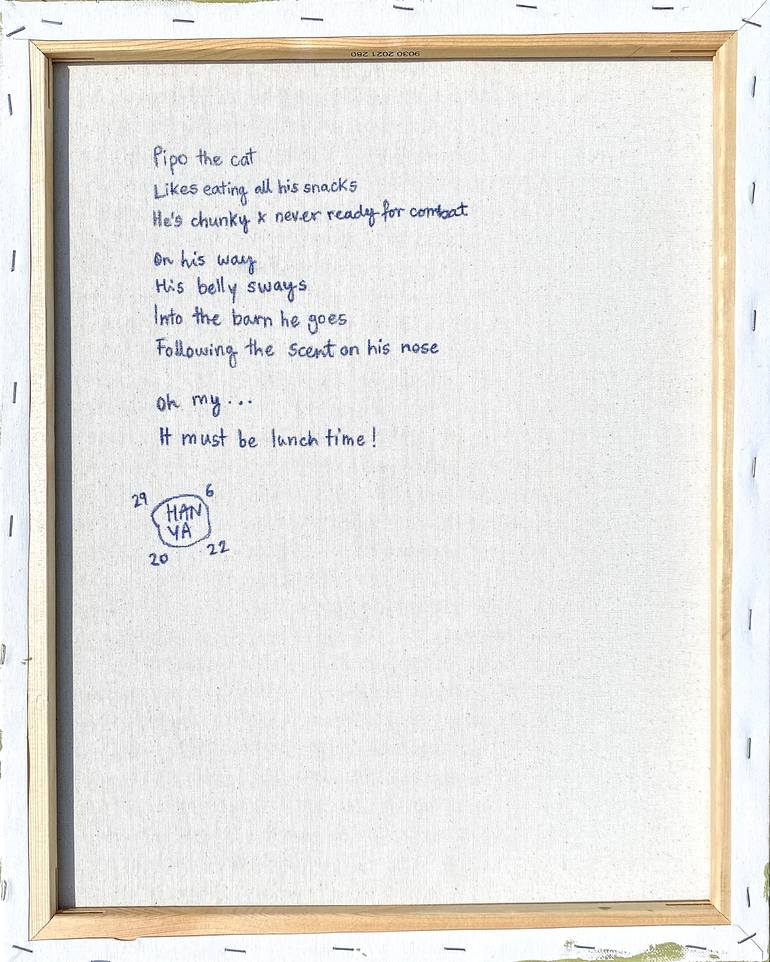 9030 2021 260
Pipo the cat
Likes eating all his snacks
He's chunky & never ready for combat
On his way
His belly sways
Into the barn he goes
Following the scent on his nose
Oh my...
It must be lunch time!
29 6
HAN
YA
20 22